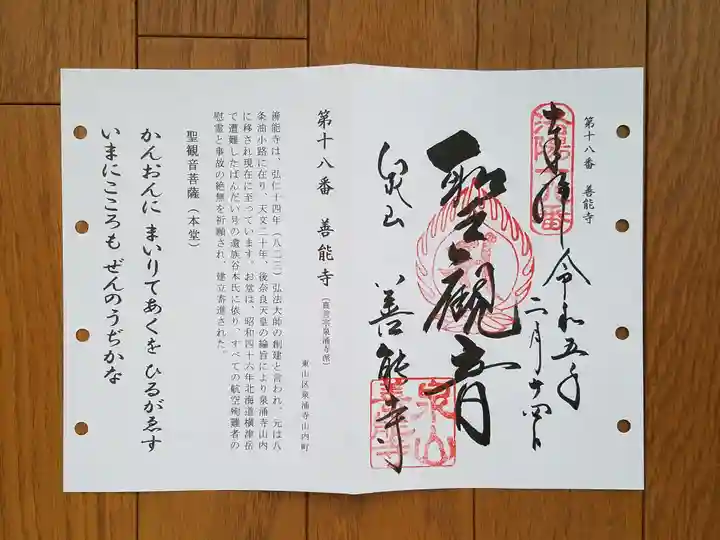 第十八番 善能寺
奉拝
令和五年
二月十四日
聖観音
泉山
善能寺
洛陽十八番
泉山
善能寺
第十八番 善能寺(真言宗泉涌寺派)
東山区泉涌寺山内町
善能寺は、弘仁十四年(八二三)弘法大師の創建と言われ、元は八
条油小路に在り、天文二十年、後奈良天皇の綸旨により泉涌寺山内
に移され現在に至っています。お堂は、昭和四十六年北海道横津岳
で遭難したばんだい号の遺族谷本氏に依り、すべての航空殉難者の
慰霊と事故の絶無を祈願され、建立寄進された。
聖観音菩薩(本堂)
かんおんに まいりてあくを ひるがゑす
いまにこころも ぜんのうぢかな